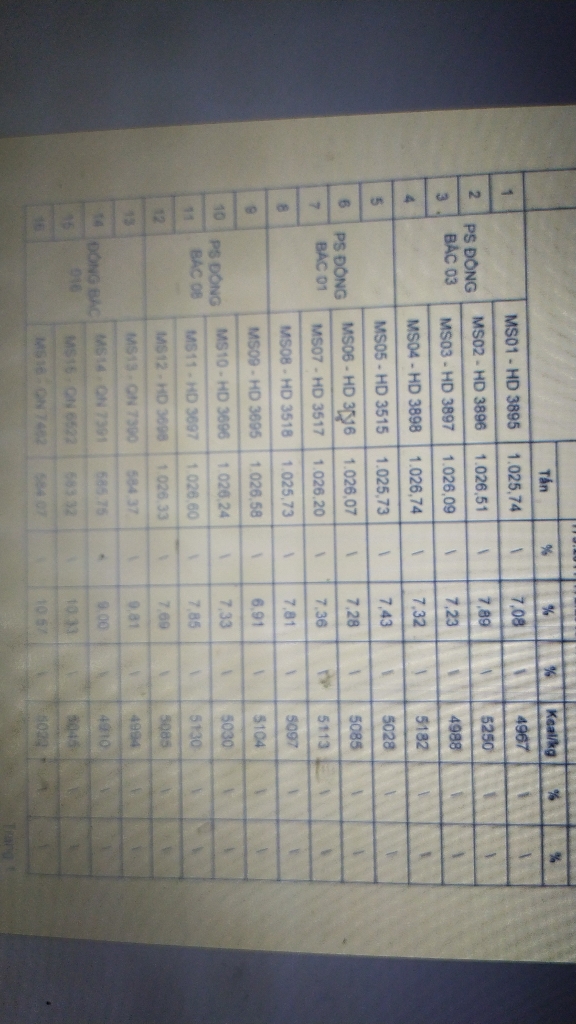 Tấn % % % Kcal/kg % %
1 PS ĐÔNG BẮC 03 MS01 - HD 3895 1.025,74 \ 7,08 \ 4967 \ \
2 MS02 - HD 3896 1.026,51 \ 7,89 \ 5250 \ \
3 MS03 - HD 3897 1.026,09 \ 7,23 \ 4988 \ \
4 MS04 - HD 3898 1.026,74 \ 7,32 \ 5182 \ \
5 PS ĐÔNG BẮC 01 MS05 - HD 3515 1.025,73 \ 7,43 \ 5028 \ \
6 MS06 - HD 3516 1.026,07 \ 7,28 \ 5085 \ \
7 MS07 - HD 3517 1.026,20 \ 7,36 \ 5113 \ \
8 MS08 - HD 3518 1.025,73 \ 7,81 \ 5097 \ \
9 PS ĐÔNG BẮC 06 MS09 - HD 3695 1.026,58 \ 6,91 \ 5104 \ \
10 MS10 - HD 3696 1.026,24 \ 7,33 \ 5030 \ \
11 MS11 - HD 3697 1.026,60 \ 7,85 \ 5130 \ \
12 MS12 - HD 3698 1.026,33 \ 7,69 \ 5085 \ \
13 ĐÔNG BẮC MS13 - QN 7390 584,37 \ 9,81 \ 4994 \ \
14 MS14 - QN 7391 585,75 \ 9,00 \ 4910 \ \
15 MS15 - QN 6522 583,32 \ 10,33 \ 5045 \ \
16 MS16 - QN 7482 584,07 \ 10,57 \ \ \
Trang 1